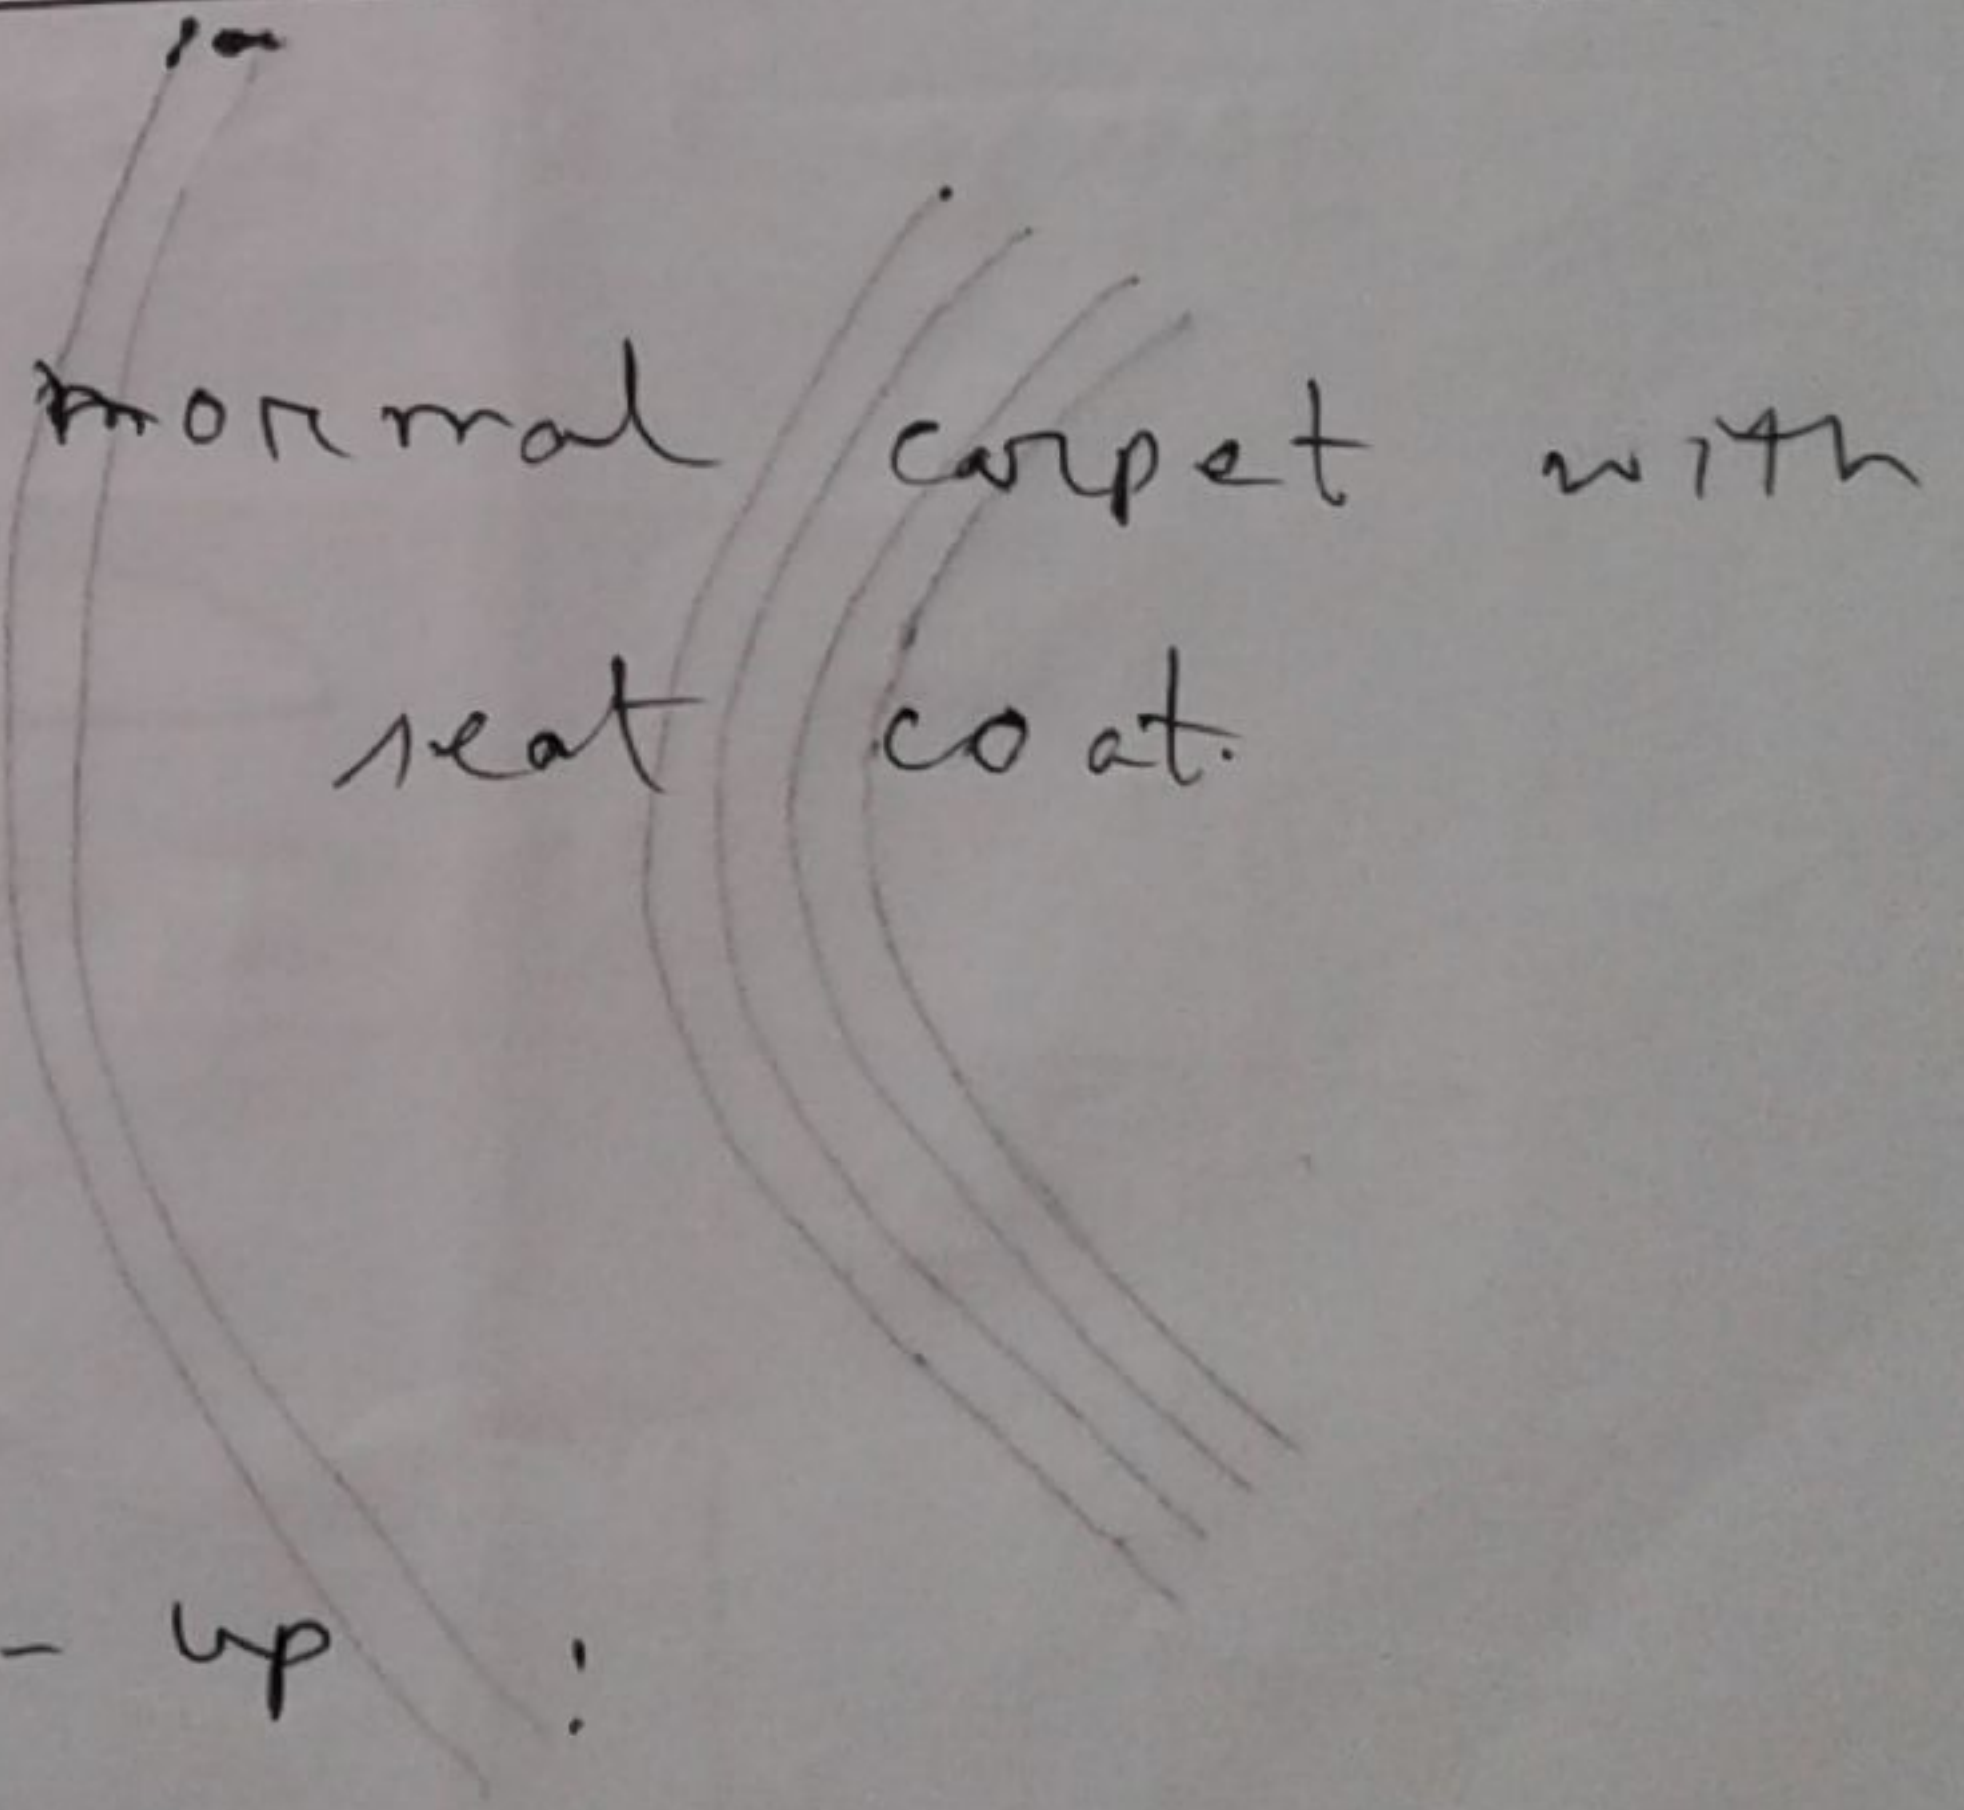 normal carpet with
seat coat.
- up :